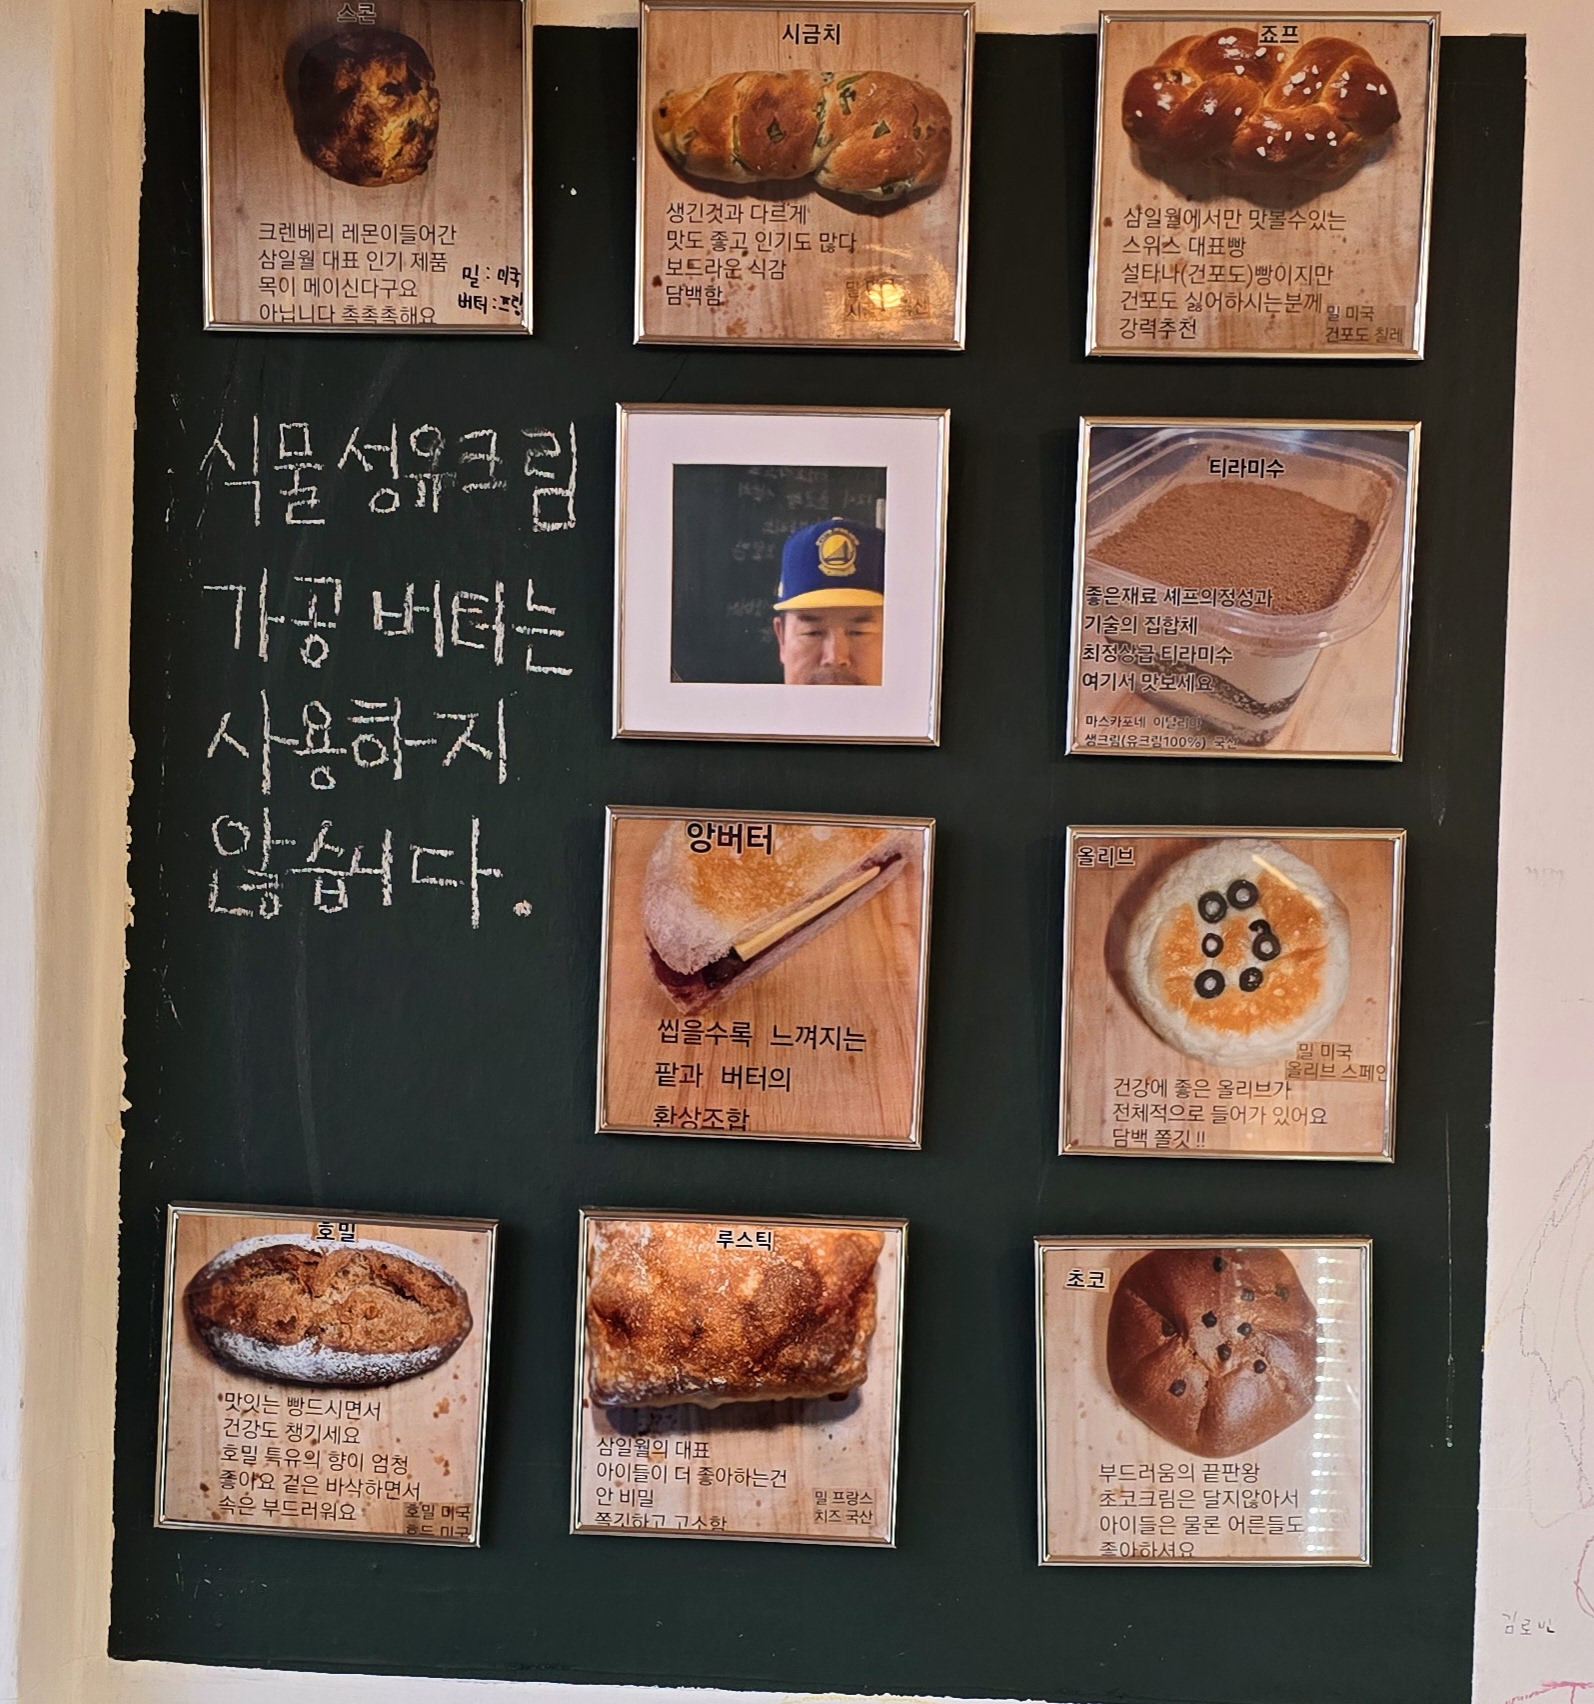 스콘
크렌베리 레몬이들어간
삼일월 대표 인기 제품
목이 메이신다구요
아닙니다 촉촉촉해요
밀 : 미국
버터 :
시금치
생긴것과 다르게
맛도 좋고 인기도 많다
보드라운 식감
담백함
밀
죠프
삼일월에서만 맛볼수있는
스위스 대표빵
설타나(건포도)빵이지만
건포도 싫어하시는분께
강력추천
밀 미국
건포도 칠레
식물성유크림
가공 버터는
사용하지
않습니다.
티라미수
좋은재료 셰프의정성과
기술의 집합체
최정상급 티라미수
여기서 맛보세요
마스카포네 이탈리아
생크림(유크림100%) 국산
앙버터
씹을수록 느껴지는
팥과 버터의
환상조합
올리브
밀 미국
올리브 스페인
건강에 좋은 올리브가
전체적으로 들어가 있어요
담백 쫄깃!!
호밀
맛잇는 빵드시면서
건강도 챙기세요
호밀 특유의 향이 엄청
좋아요 겉은 바삭하면서
속은 부드러워요
호밀 미국
호두 미국
루스틱
삼일월의 대표
아이들이 더 좋아하는건
안 비밀
쫄깃하고 고소함
밀 프랑스
치즈 국산
초코
부드러움의 끝판왕
초코크림은 달지않아서
아이들은 물론 어른들도
좋아하셔요